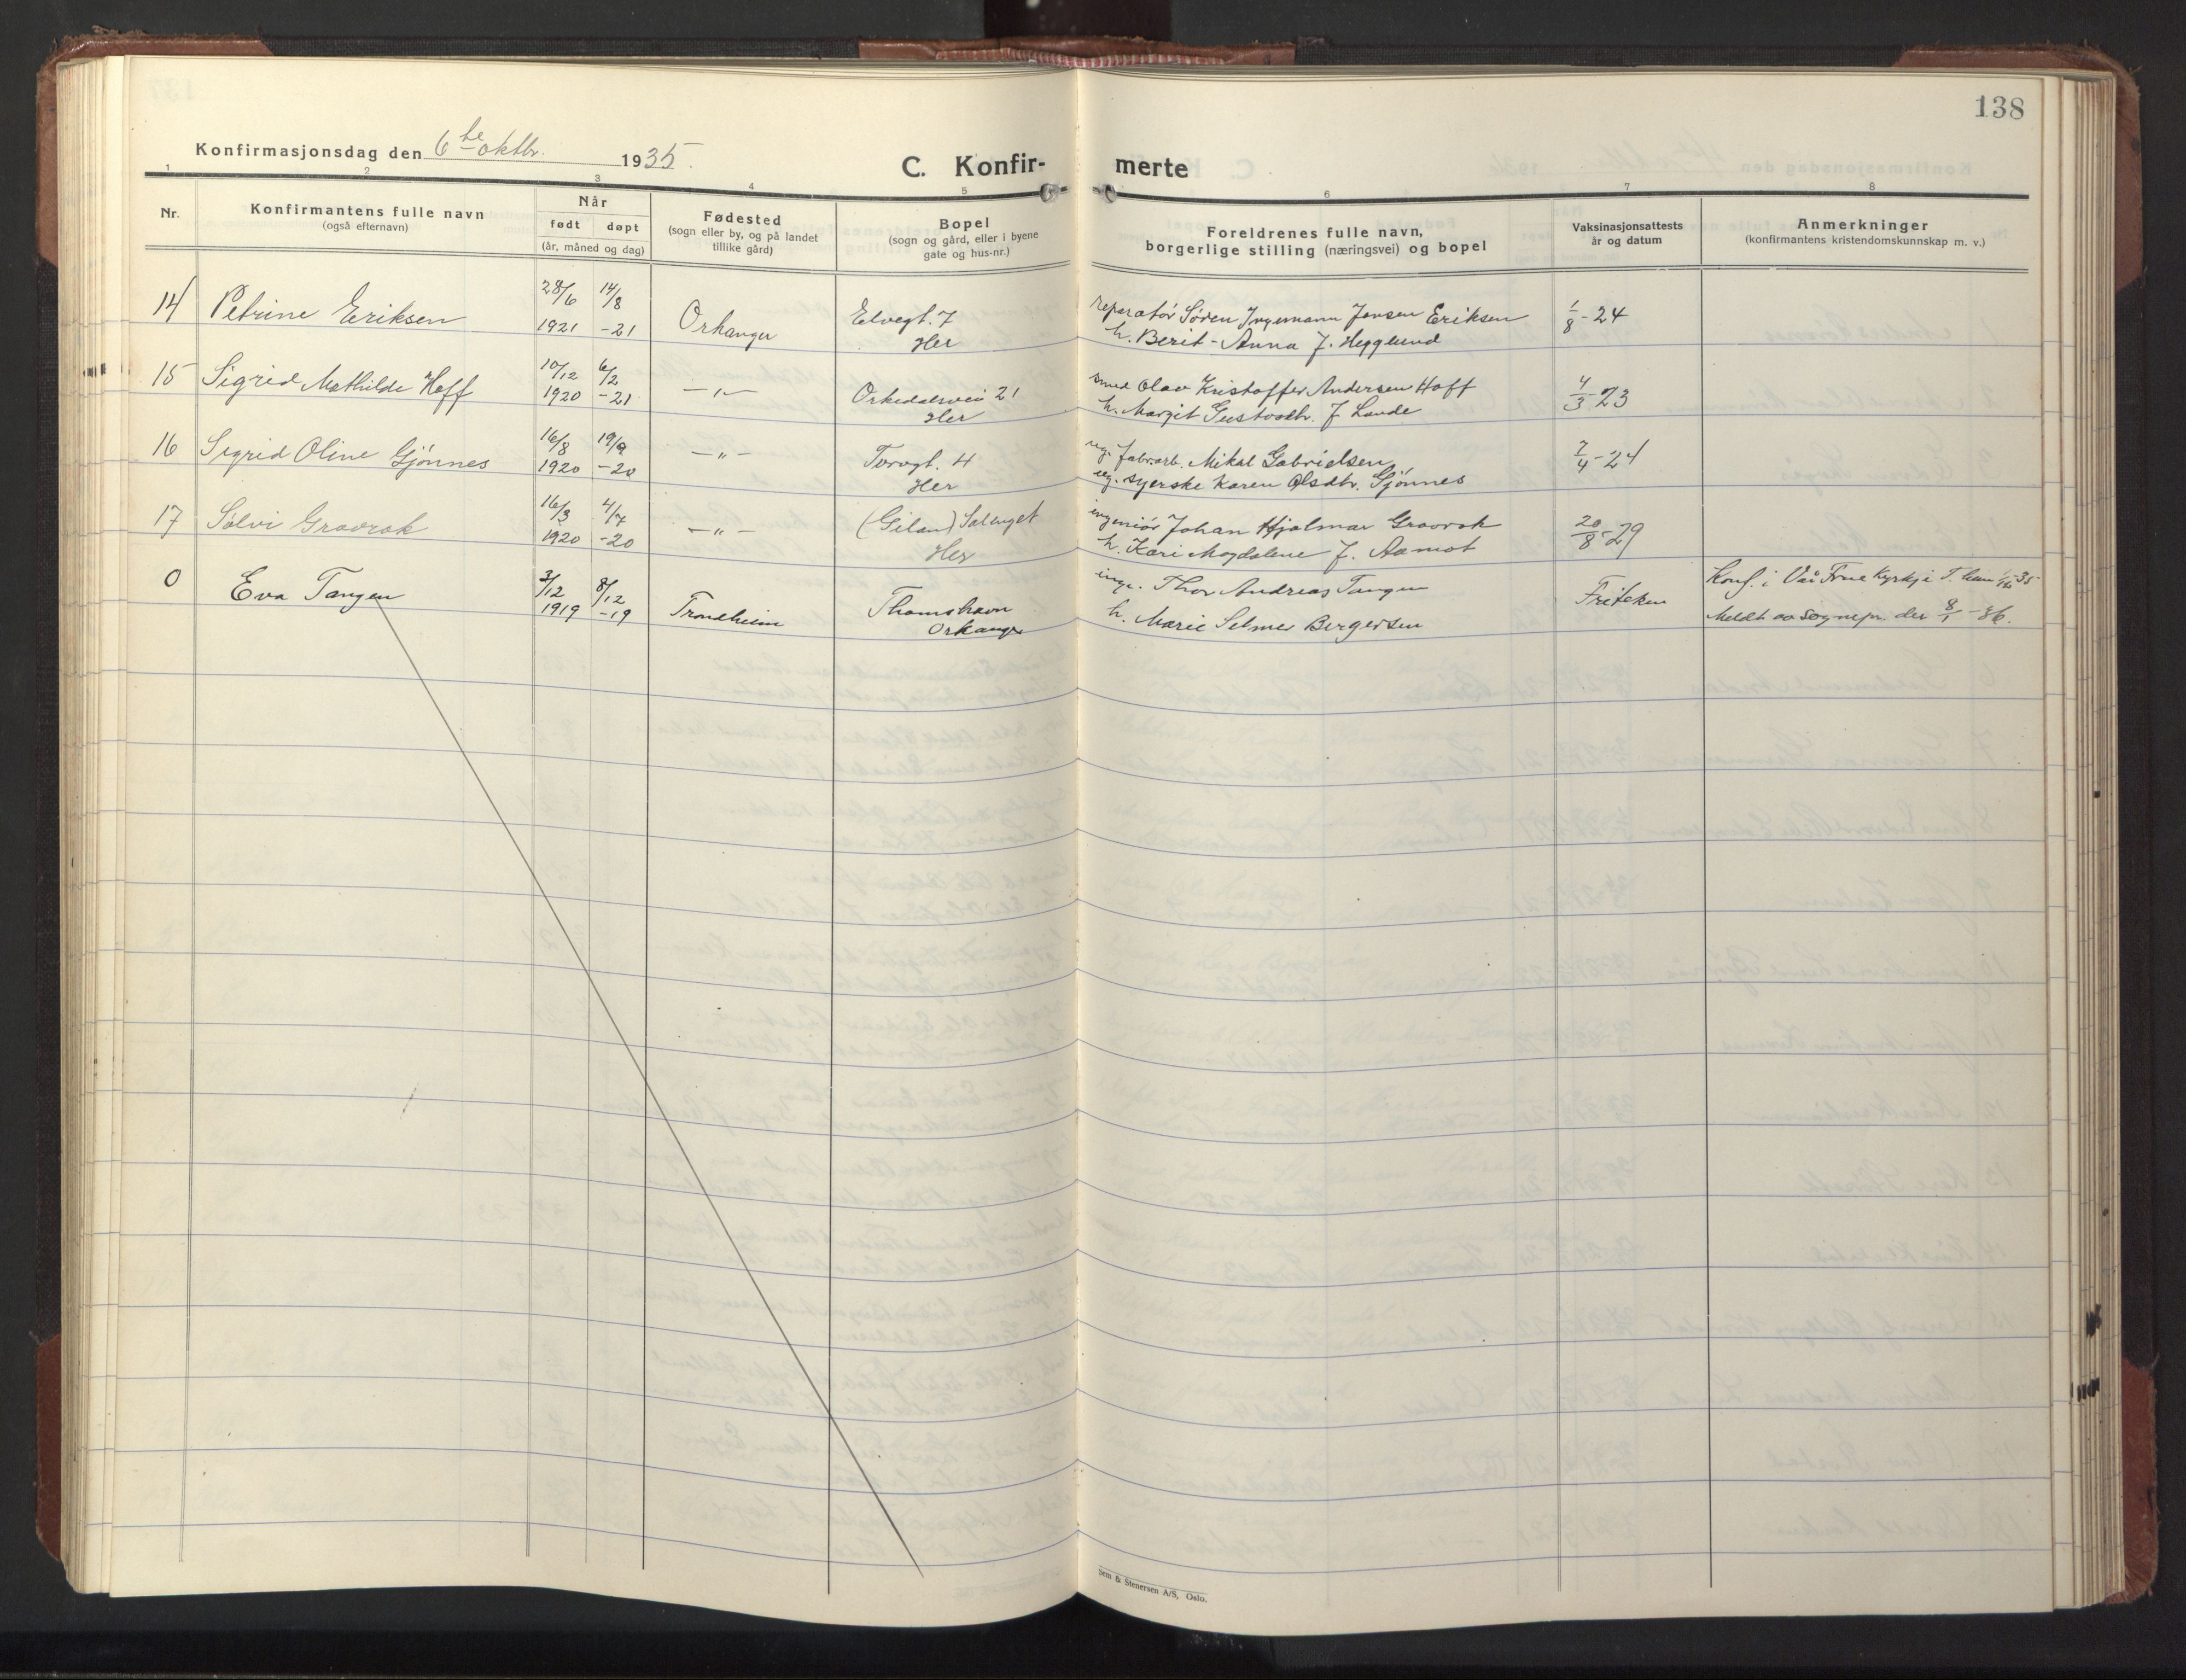 138
Konfirmasjonsdag den 6te oktbr. 1935.
C. Konfir- merte
1 2 3 4 5 6 7 8
Nr.
Konfirmantens fulle navn
(også efternavn)
Når
født døpt
(år, måned og dag)
Fødested
(sogn eller by, og på landet
tillike gård)
Bopel
(sogn og gård, eller i byene
gate og hus-nr.)
Foreldrenes fulle navn,
borgerlige stilling (næringsvei) og bopel
Vaksinasjonsattests
år og datum
Anmerkninger
(konfirmantens kristendomskunnskap m. v.)
14 Petrine Eriksen 28/6 1921 14/8 -21 Orkanger Elvegt. 7 Her
reparatør Søren Ingemann Jensen Eriksen
h. Berit-Anna f. Hegglund
1/8-24
15 Sigrid Mathilde Hoff 10/12 1920 6/2 -21 -"- Orkedalsvei 21 Her
smed Olav Kristoffer Andersen Hoff
h. Margit Gustavdtr. f. Lande
4/3-23
16 Sigrid Oline Gjønnes 16/8 1920 19/9 -20 -"- Torvgt. 4 Her
ug. fabr.arb. Mikal Gabrielsen
ug. syerske Karen Olsdtr. Gjønnes
7/4-24
17 Sølvi Gravrok 16/3 1920 4/7 -20 -"- (Gilan) Solenget Her
ingeniør Johan Hjalmar Gravrok
h. Kari Magdalene f. Aamot
20/8-29
0 Eva Tangen 3/12 1919 8/12 -19 Trondheim Thamshavn Orkanger
inge. Thor Andreas Tangen
h. Marie Selmer Bergersen
Konf. i Vår Frue Kyrkje T.heim -35
Meldt av Sognepr. der 8/1-36.
Sem & Stenersen A/S, Oslo.